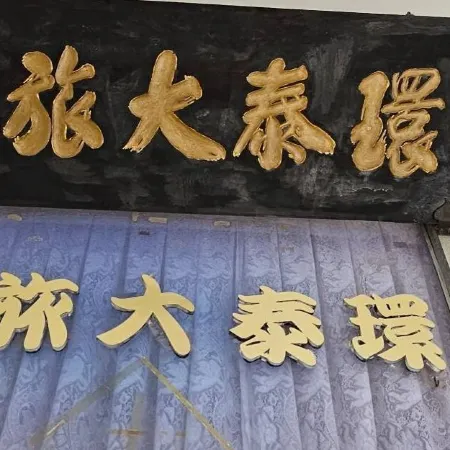 環泰大旅
環泰大旅